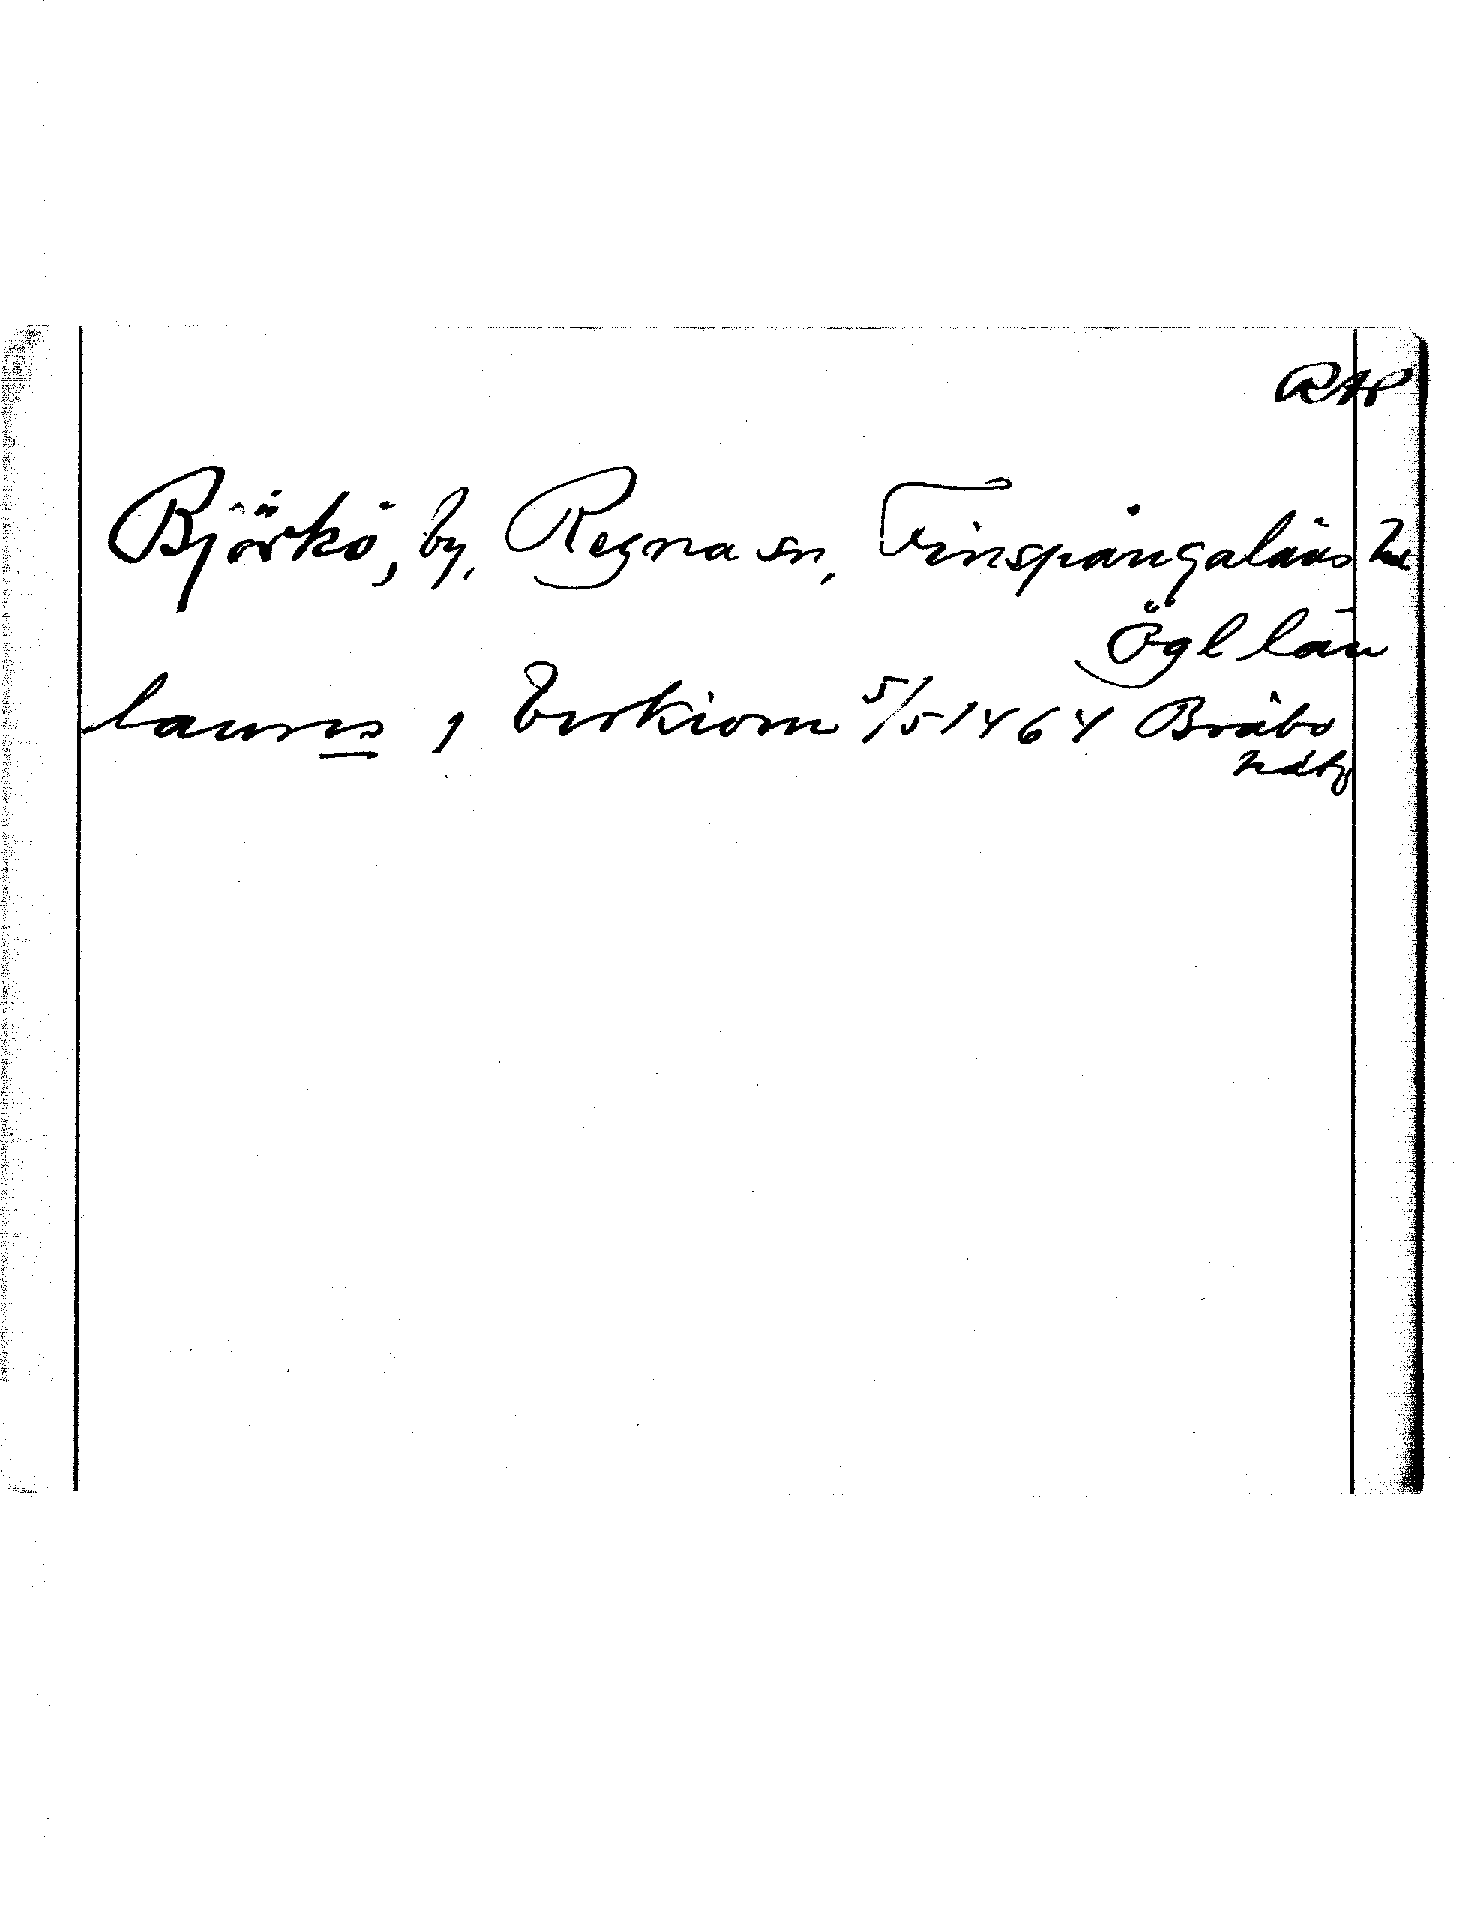 RAP
Björkö, by, Regna sn, Finspångaläns hd
Ögl län
laurus, i birkiom 5/5 1464 Bråbo
hdtg